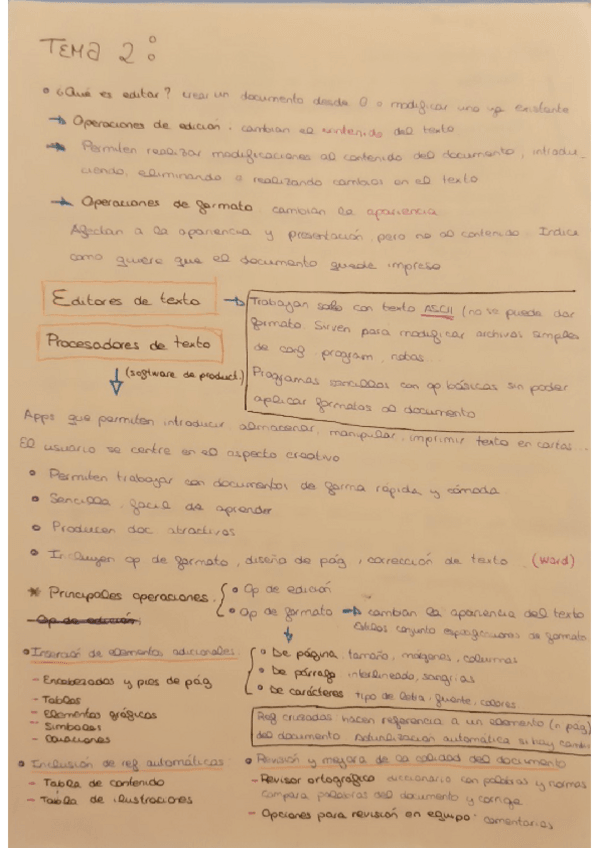 TEMA 2:
• ¿Qué es editar? crear un documento desde 0 o modificar uno ya existente
→ Operaciones de edición: cambian el contenido del texto
→ Permiten realizar modificaciones al contenido del documento, introdu-
ciendo, eliminando o realizando cambios en el texto
→ Operaciones de formato cambian la apariencia
Afectan a la apariencia y presentación pero no al contenido. Indica
como quiere que el documento quede impreso
Editores de texto →
Trabajan solo con texto ASCII (no se puede dar
formato. Sirven para modificar archivos simples
de conf. program, notas...
Programas sencillos con op básicas sin poder
aplicar formatos al documento
Procesadores de texto
(software de product.)
Apps que permiten introducir, almacenar, manipular, imprimir texto en cartas...
El usuario se centre en el aspecto creativo
• Permiten trabajar con documentos de forma rápida y cómoda
• Sencilla, facil de aprender
• Producen doc atractivos
• Incluyen op de formato, diseño de pág, corrección de texto. (word)
* Principales operaciones
• Op de edición
• Op de formato → cambian la apariencia del texto
Estilos conjunto especificaciones de formato
• De página, tamaño, margenes, columnas
• De párrafo interlineado, sangrias
• De carácteres tipo de letra, fuente, colores
Op de edición:
• Inserción de elementos adicionales:
- Encabezados y pies de pág
- Tablas
- Elementos gráficos
- Simbolos
- Ecuaciones
Ref cruzadas hacen referencia a un elemento (n pág)
del documento Actualización automática si hay cambi
• Inclusión de ref automáticas:
- Tabla de contenido
- Tabla de ilustraciones
• Revisión y mejora de la calidad del documento
- Revisor ortografico diccionario con palabras y normas
compara palabras del documento y corrige
- Opciones para revisión en equipo: comentarios